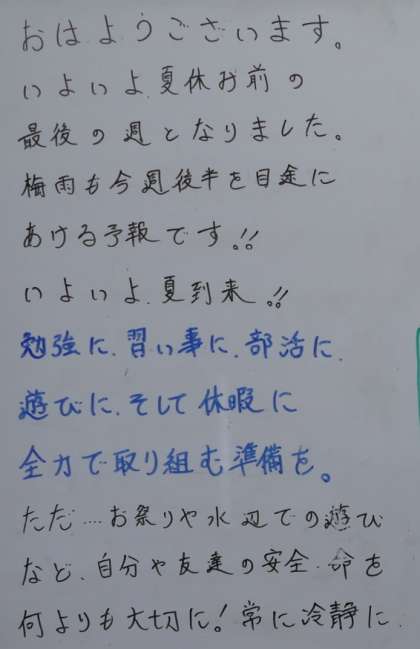 おはようございます。
いよいよ、夏休み前の
最後の週となりました。
梅雨も今週後半を目途に
あける予報です!!
いよいよ、夏到来!!
勉強に、習い事に、部活に、
遊びに、そして休暇に
全力で取り組む準備を。
ただ…お祭りや水辺での遊び
など、自分や友達の安全、命を
何よりも大切に!常に冷静に